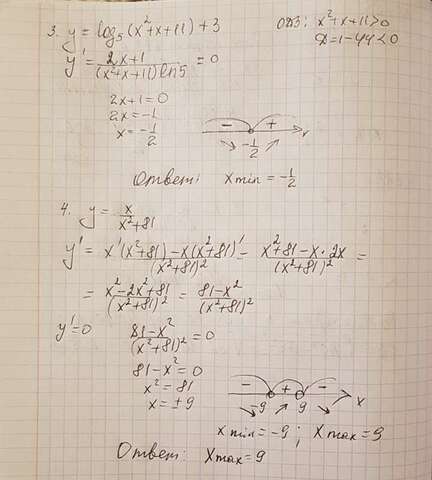 3. y = log₅(x²+x+11)+3
ОДЗ: x²+x+11>0
D=1-44<0
y' = (2x+1)/((x²+x+11) ln5) = 0
2x+1=0
2x=-1
x=-1/2
- + x
-1/2
Ответ: xmin = -1/2
4. y = x/(x²+81)
y' = (x'(x²+81)-x(x²+81)')/(x²+81)² - (x²+81-x·2x)/(x²+81)² =
= (x²-2x²+81)/(x²+81)² = (81-x²)/(x²+81)²
y'=0 (81-x²)/(x²+81)² = 0
81-x²=0
x²=81
x=±9
- + - x
-9 9
xmin=-9; xmax=9
Ответ: xmax=9